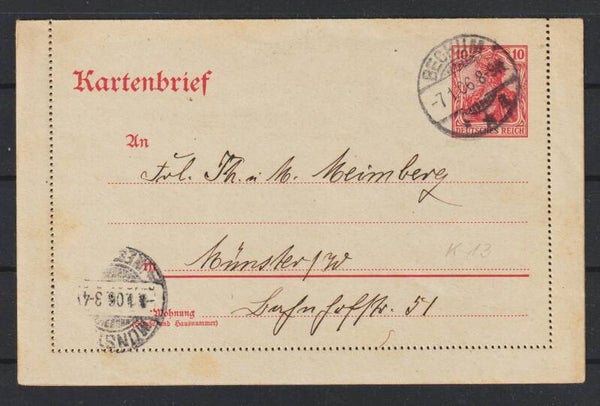 BECKUM
10 10
Kartenbrief
-7.1.06.8-9
DEUTSCHES REICH
An
Frl. Th. u. M. Meimberg
K 13
In Münster i/W
Wohnung
Bahnhofstr. 51
(Straße und Hausnummer)
1.06.3-4
MÜNS